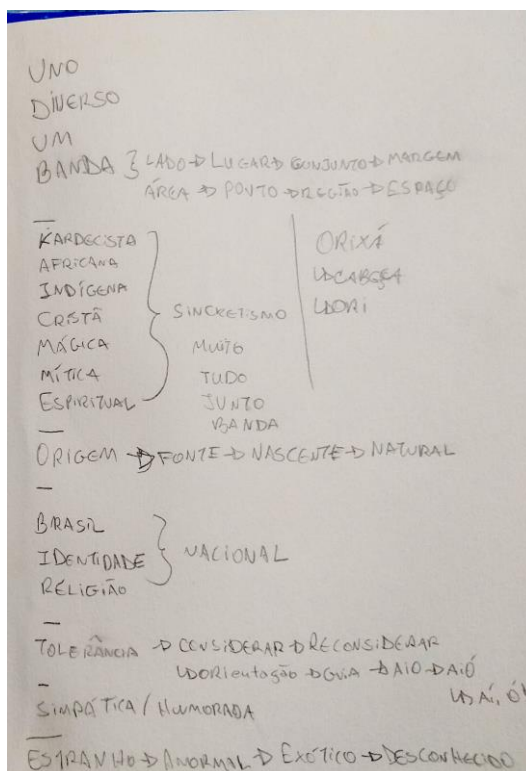 UNO
DIVERSO
UM
BANDA } LADO → LUGAR → CONJUNTO → MARGEM
ÁREA → PONTO → REGIÃO → ESPAÇO
—
KARDECISTA
AFRICANA
INDÍGENA
CRISTÃ
MÁGICA
MÍTICA
ESPIRITUAL
} SINCRETISMO
MUITO
TUDO
JUNTO
BANDA
ORIXÁ
↳ CABEÇA
↳ ORI
—
ORIGEM → FONTE → NASCENTE → NATURAL
—
BRASIL
IDENTIDADE
RELIGIÃO
} NACIONAL
—
TOLERÂNCIA → CONSIDERAR → RECONSIDERAR
↳ ORIentação → GUIA → AIO → AIÓ
↳ AÍ, Ó!
—
SIMPÁTICA / HUMORADA
—
ESTRANHO → ANORMAL → EXÓTICO → DESCONHECIDO